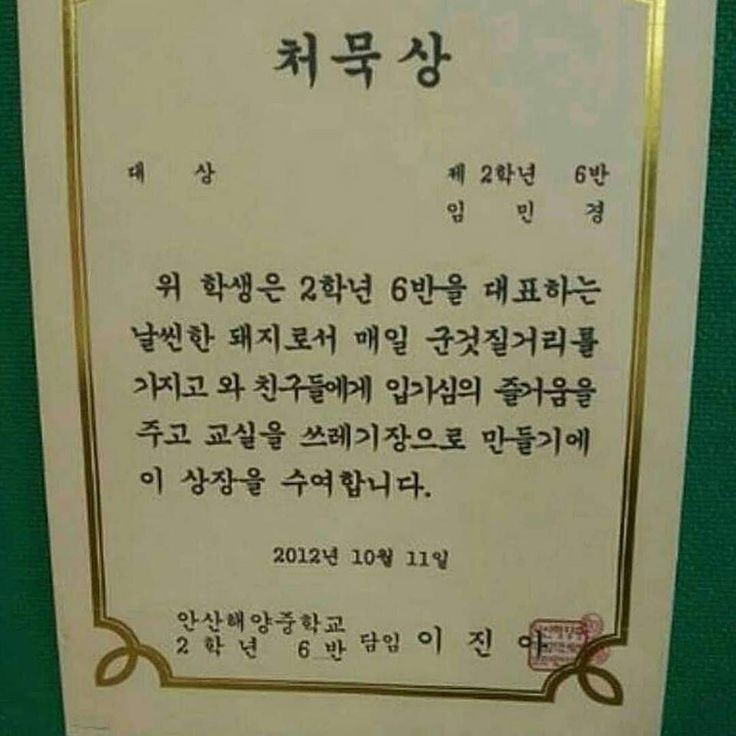 처묵상
대 상 제 2학년 6반
임 민 경
위 학생은 2학년 6반을 대표하는
날씬한 돼지로서 매일 군것질거리를
가지고 와 친구들에게 입가심의 즐거움을
주고 교실을 쓰레기장으로 만들기에
이 상장을 수여합니다.
2012년 10월 11일
안산해양중학교
2 학 년 6 반 담임 이 진 아